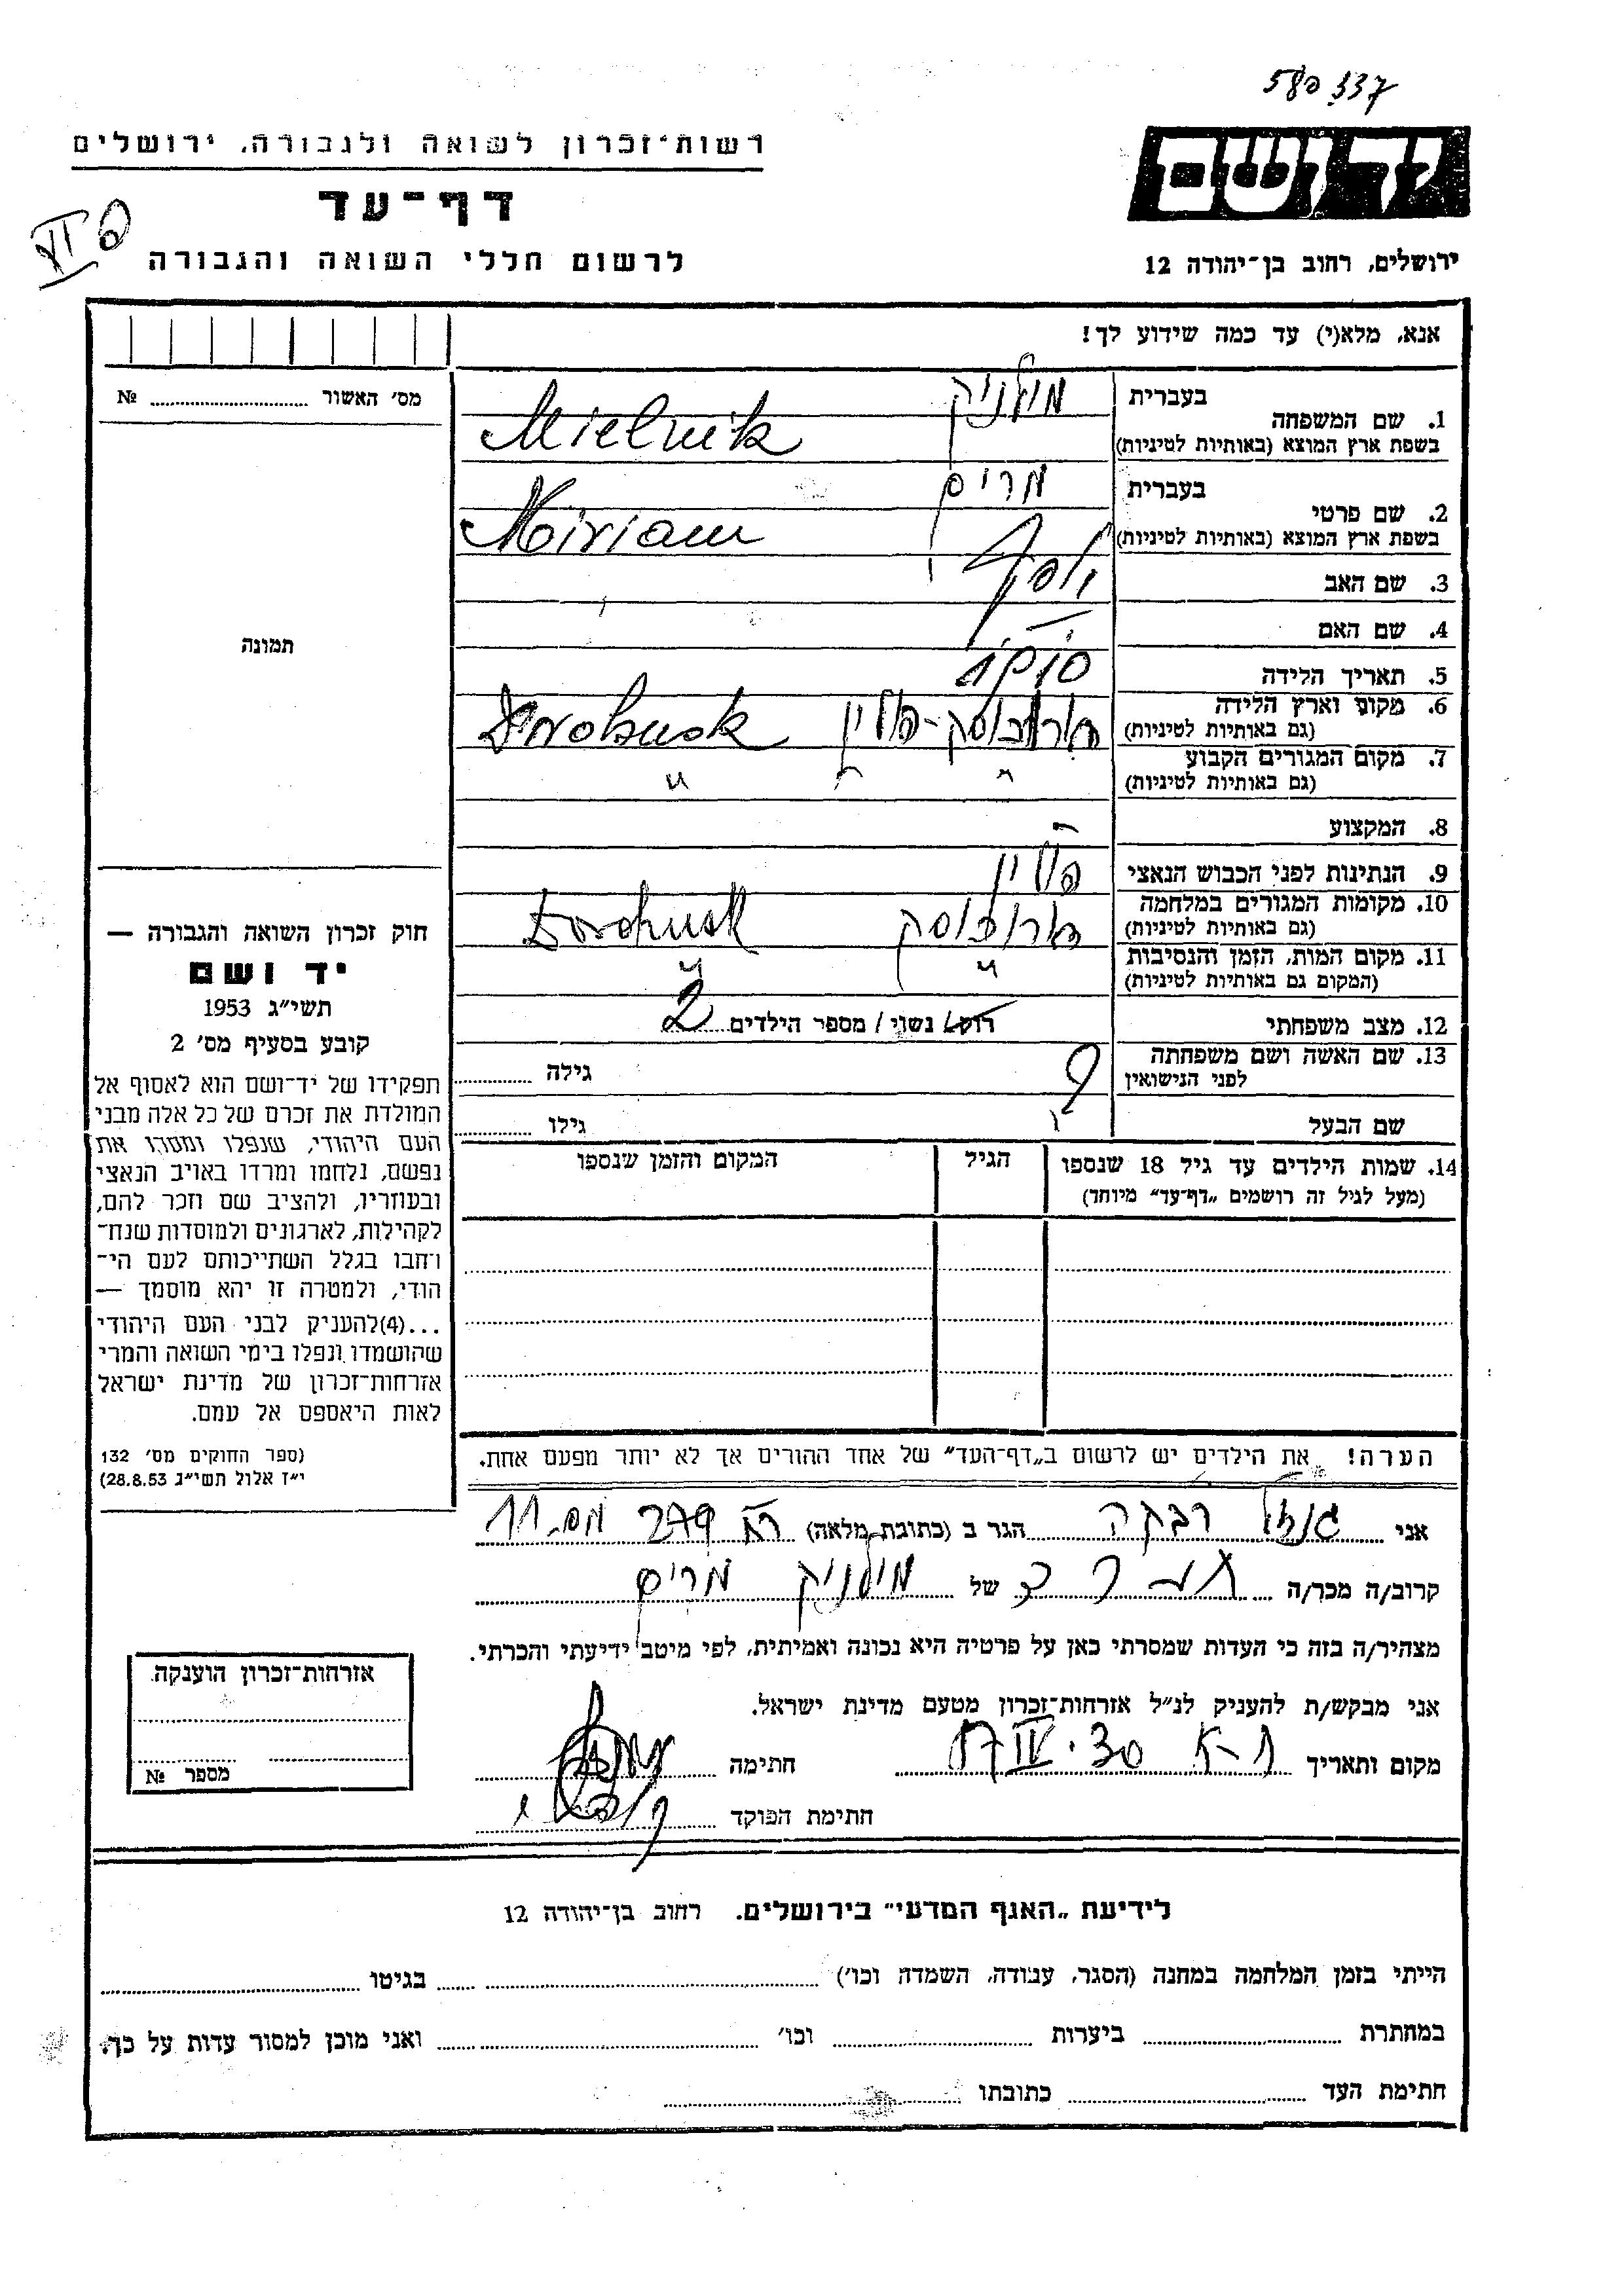 580337
רשות־זכרון לשואה ולגבורה, ירושלים
יד ושם
דף־עד
לרשום חללי השואה והגבורה
ירושלים, רחוב בן־יהודה 12
אנא, מלא(י) עד כמה שידוע לך!
מס׳ האשור № 
בעברית מילניק
1. שם המשפחה
בשפת ארץ המוצא (באותיות לטיניות) Mielnik
בעברית מרים
2. שם פרטי
בשפת ארץ המוצא (באותיות לטיניות) Miriam
3. שם האב יוסף
4. שם האם
תמונה
5. תאריך הלידה
6. מקום וארץ הלידה
(גם באותיות לטיניות) פולין
7. מקום המגורים הקבוע
(גם באותיות לטיניות) " "
8. המקצוע —
9. הנתינות לפני הכבוש הנאצי פולין
10. מקומות המגורים במלחמה
(גם באותיות לטיניות) Dorohusk
11. מקום המות, הזמן והנסיבות
(המקום גם באותיות לטיניות) " "
12. מצב משפחתי רווק/ נשוי/ מספר הילדים 2
13. שם האשה ושם משפחתה
לפני הנישואין גילה
שם הבעל גילו
14. שמות הילדים עד גיל 18 שנספו
(מעל לגיל זה רושמים „דף־עד״ מיוחד)
הגיל
המקום והזמן שנספו
חוק זכרון השואה והגבורה —
יד ושם
תשי״ג 1953
קובע בסעיף מס׳ 2
תפקידו של יד־ושם הוא לאסוף אל
המולדת את זכרם של כל אלה מבני
העם היהודי, שנפלו ומסרו את
נפשם, נלחמו ומרדו באויב הנאצי
ובעוזריו, ולהציב שם וזכר להם,
לקהילות, לארגונים ולמוסדות שנח־
רבו בגלל השתייכותם לעם הי־
הודי, ולמטרה זו יהא מוסמך —
...(4)להעניק לבני העם היהודי
שהושמדו ונפלו בימי השואה והמרי
אזרחות־זכרון של מדינת ישראל
לאות היאספם אל עמם.
(ספר החוקים מס׳ 132
י״ז אלול תשי״ג 28.8.53)
הערה! את הילדים יש לרשום ב„דף־העד״ של אחד ההורים אך לא יותר מפעם אחת.
אני רבקה הגר ב (כתובת מלאה) 279 מס. 11
קרוב/ה מכר/ה של מילניק מרים
מצהיר/ה בזה כי העדות שמסרתי כאן על פרטיה היא נכונה ואמיתית, לפי מיטב ידיעתי והכרתי.
אני מבקש/ת להעניק לנ״ל אזרחות־זכרון מטעם מדינת ישראל.
מקום ותאריך ת-א 30.IV חתימה
חתימת הפוקד
אזרחות־זכרון הוענקה.
מספר №
לידיעת „האגף המדעי״ בירושלים. רחוב בן־יהודה 12
הייתי בזמן המלחמה במחנה (הסגר, עבודה, השמדה וכו׳) בגיטו
במחתרת ביערות וכו׳ ואני מוכן למסור עדות על כך.
חתימת העד כתובתו